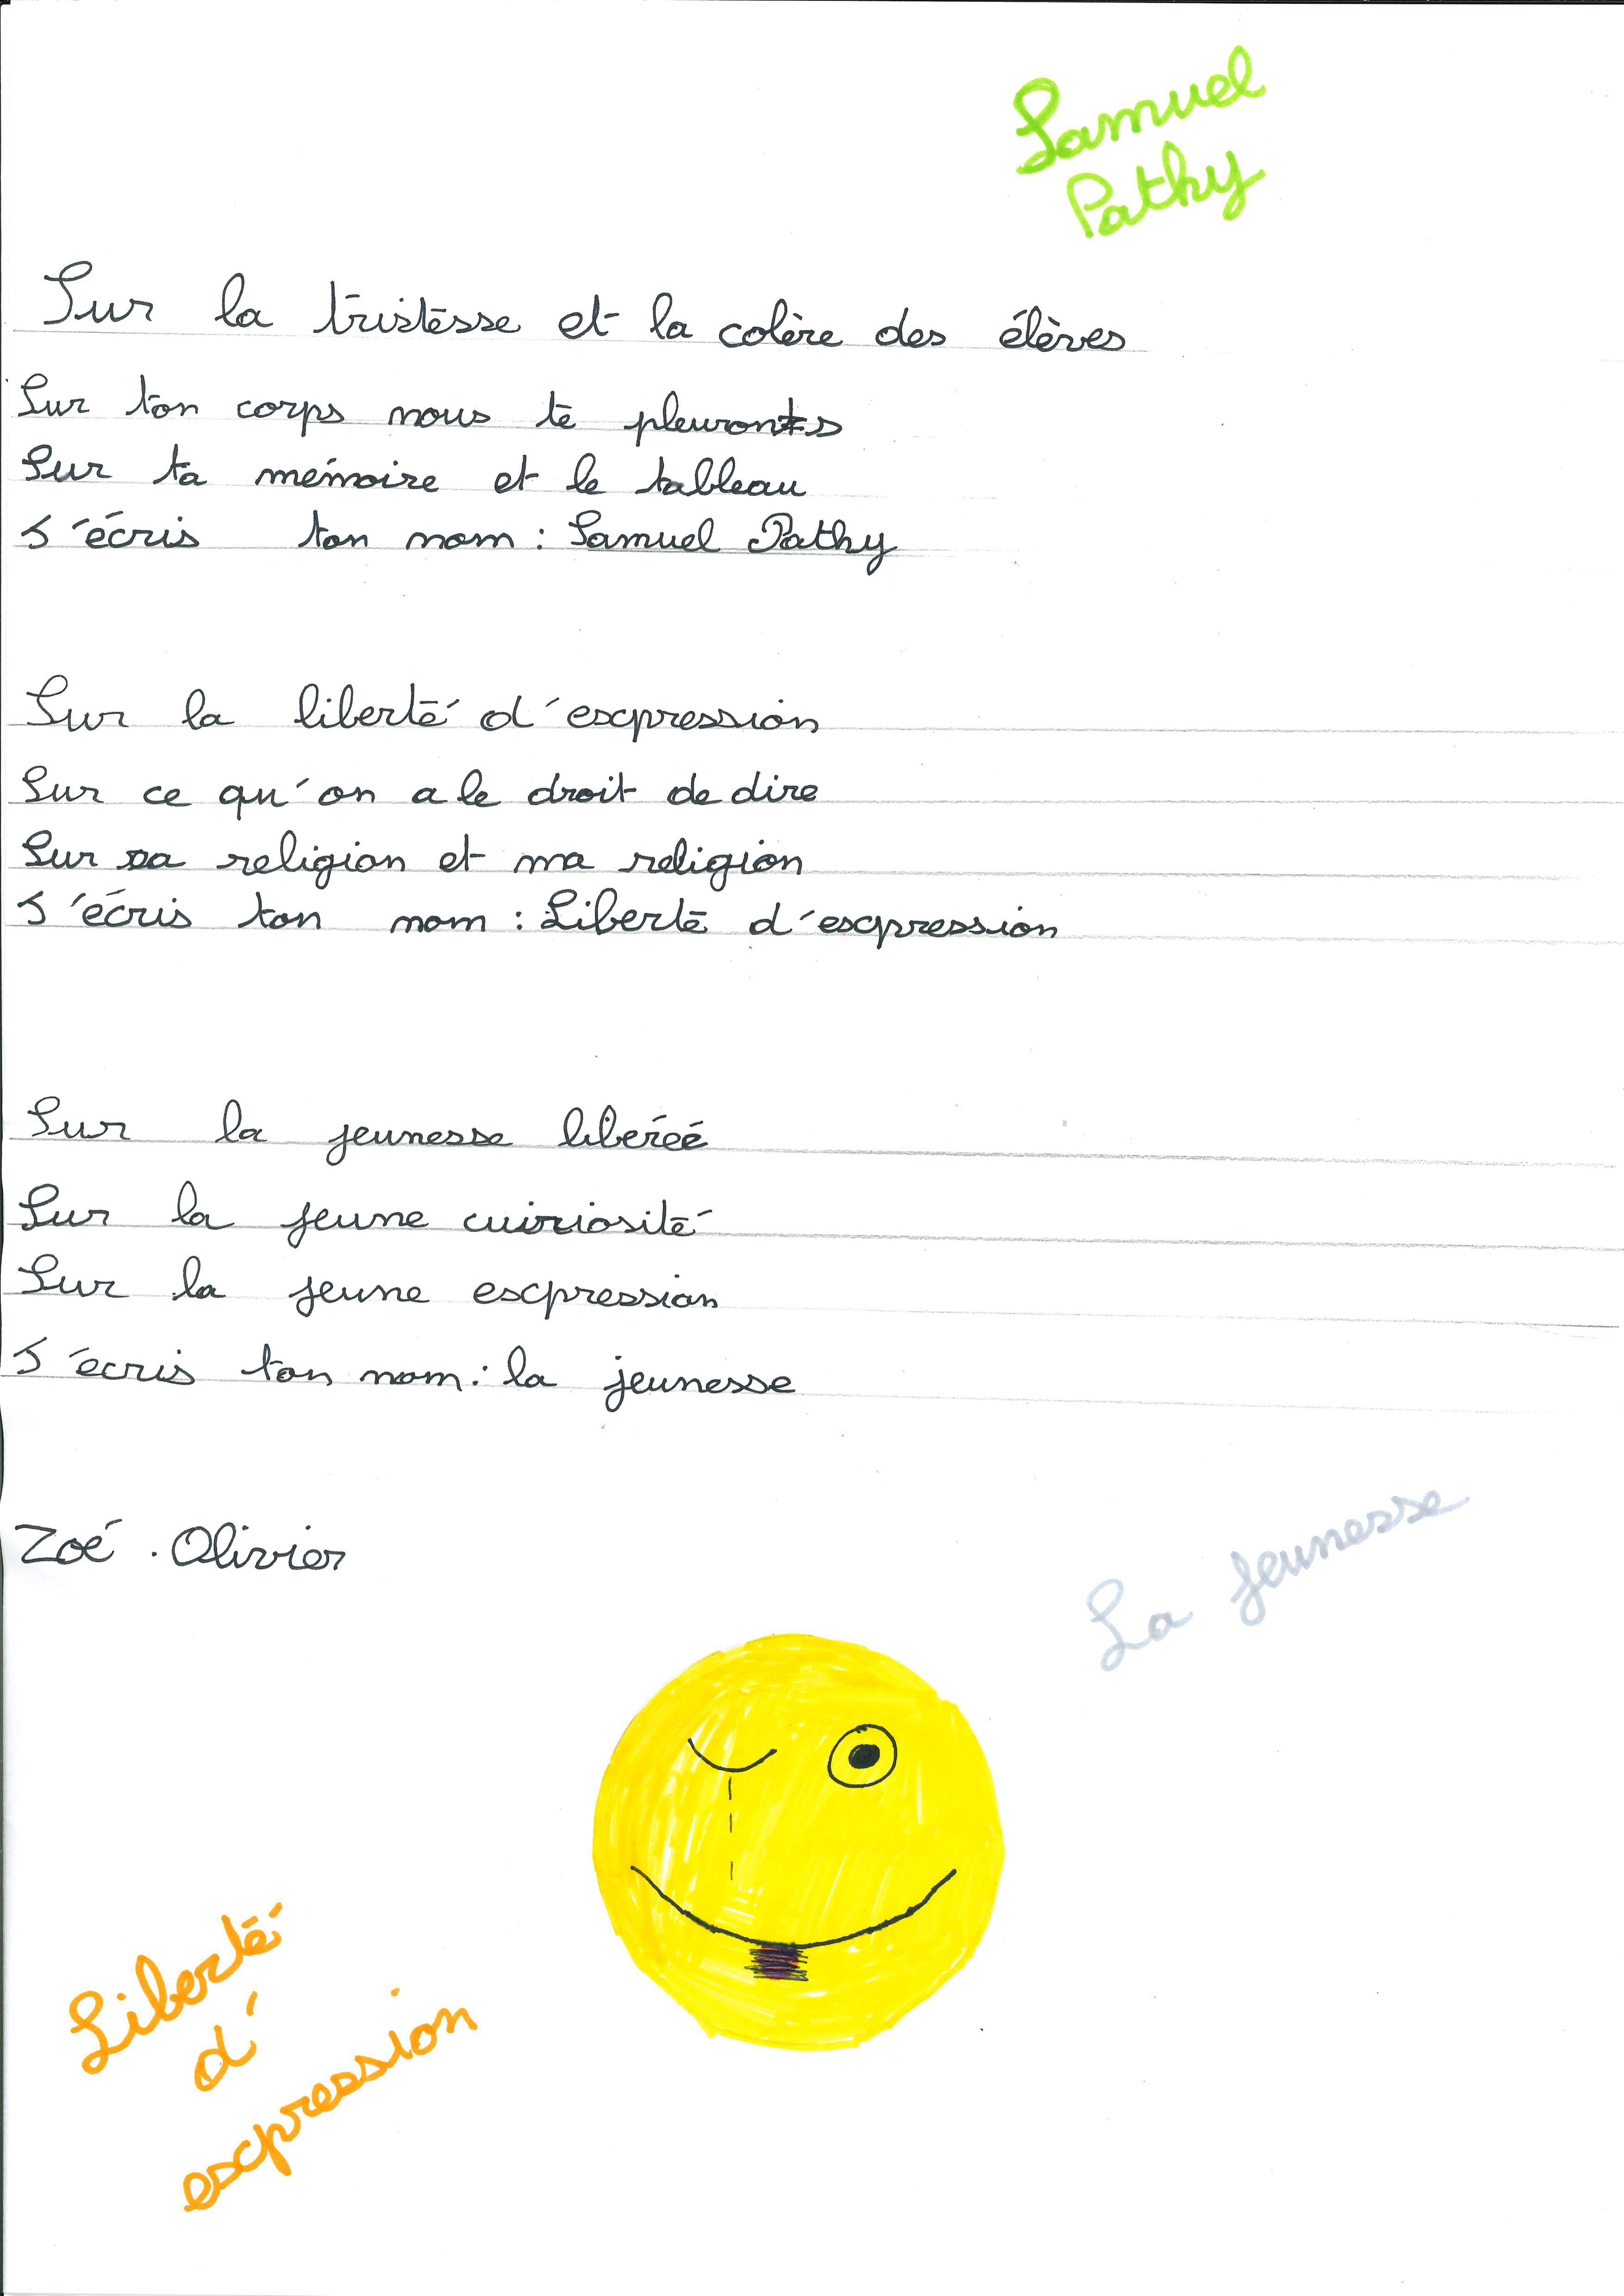 Samuel
Pathy
Sur la tristesse et la colère des élèves
Sur ton corps nous te pleurons
Sur ta mémoire et le tableau
J'écris ton nom : Samuel Pathy
Sur la liberté d'expression
Sur ce qu'on a le droit de dire
Sur sa religion et ma religion
J'écris ton nom : Liberté d'expression
Sur la jeunesse libéréé
Sur la jeune curiosité
Sur la jeune expression
J'écris ton nom : la jeunesse
Zoé . Olivier
La jeunesse
Liberté
d'
expression